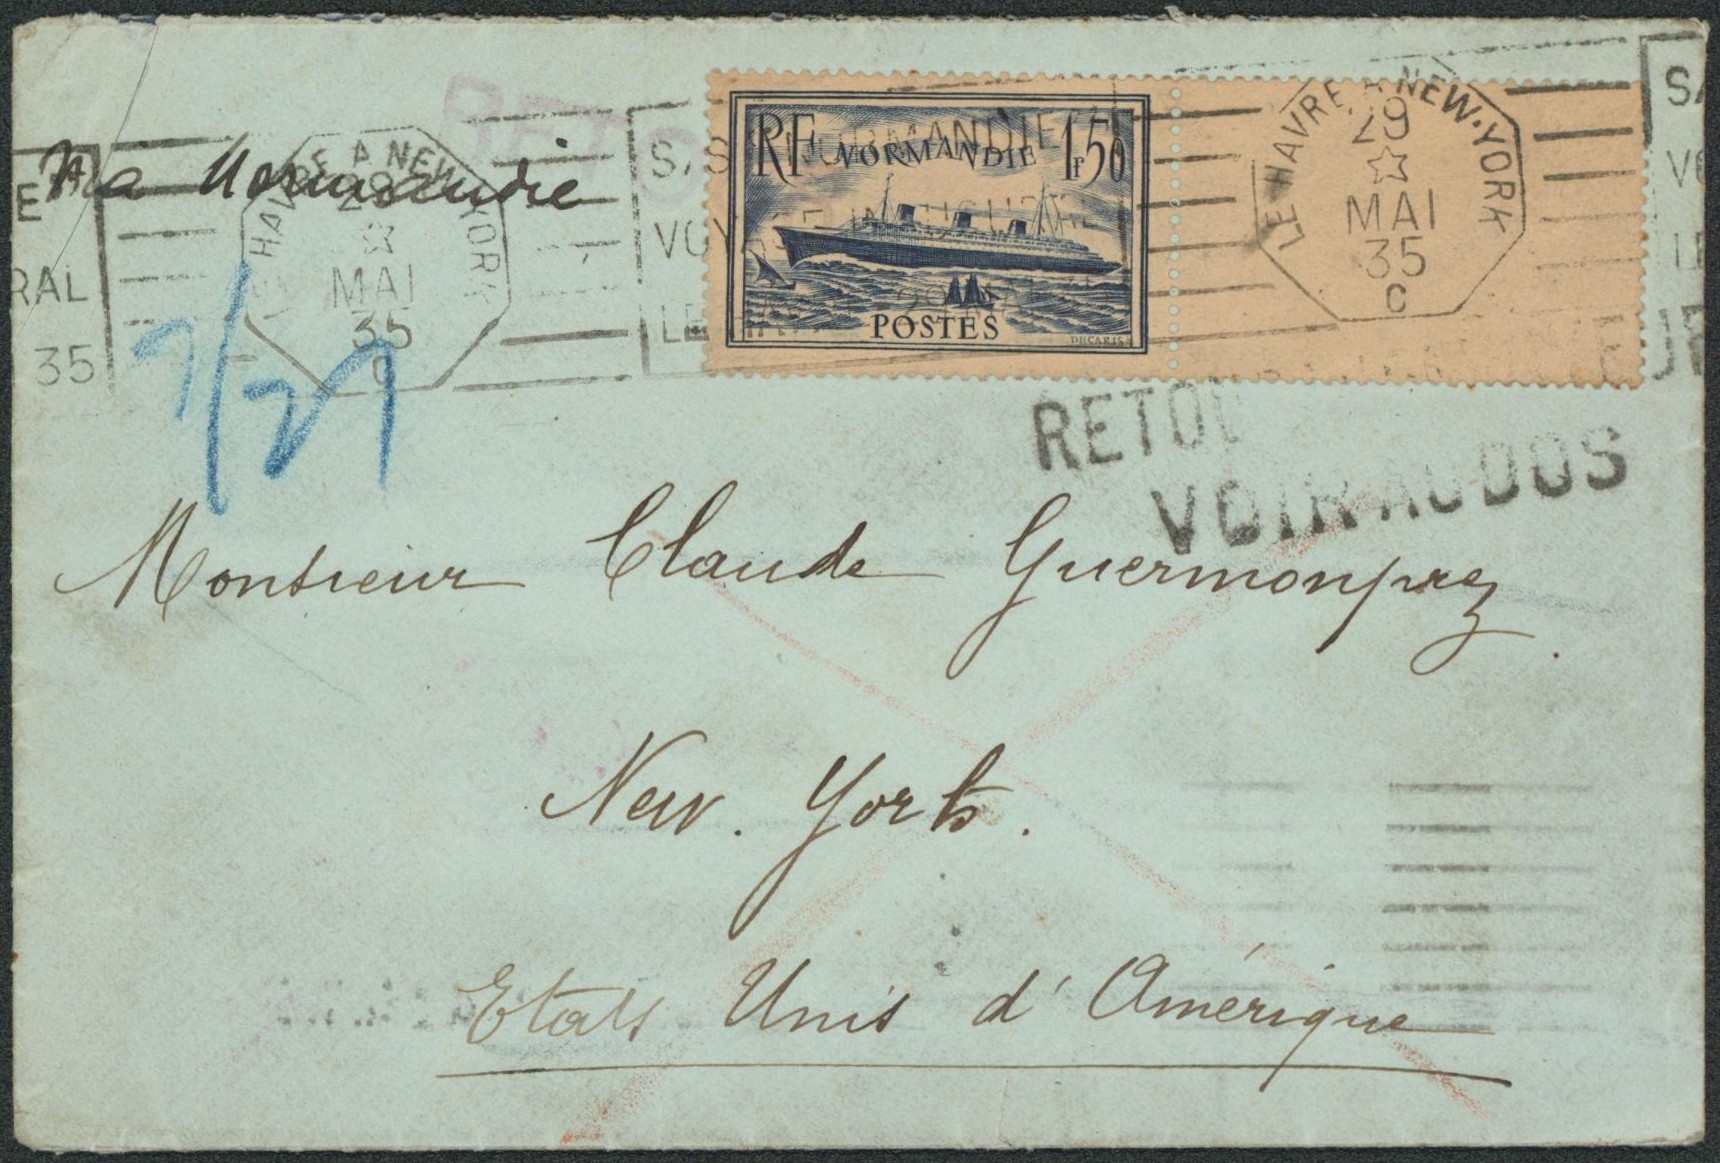 Via Normandie
RAL
35
HAVRE A NEW YORK
MAI
35
C
S/S NORMANDIE
VOYAGE INAUGURAL
LE
RF NORMANDIE 1F50
POSTES
DECARIS
LE HAVRE A NEW-YORK
29
MAI
35
C
RETOU
VOIR AU DOS
Monsieur Claude Guermonprez
New. York.
Etats Unis d'Amérique